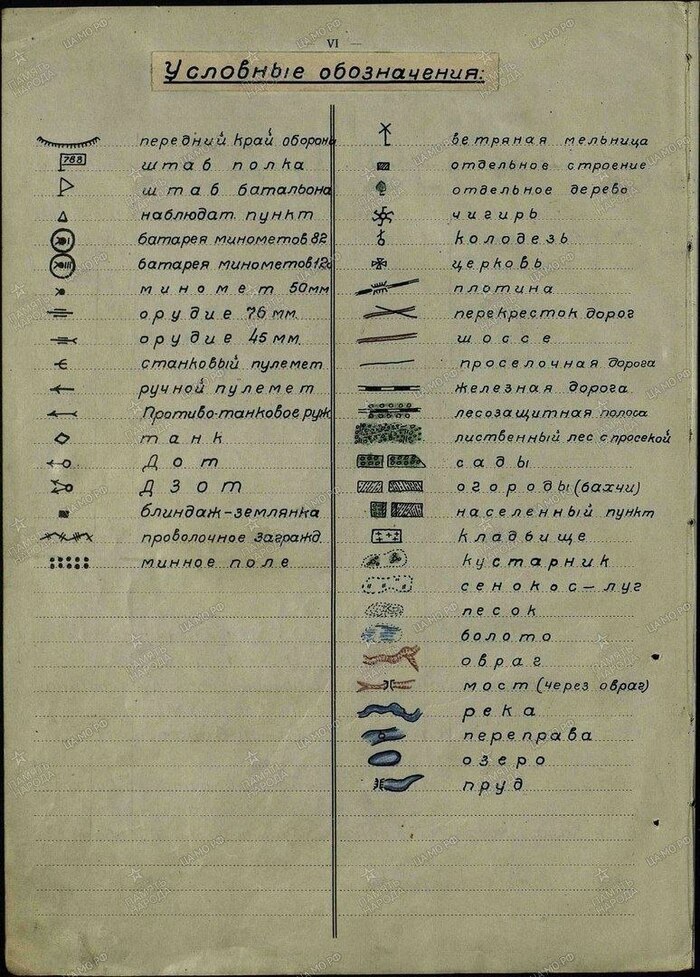 VI
Условные обозначения:
передний край оборон
768
штаб полка
штаб батальона
наблюдат. пункт
батарея минометов 82
батарея минометов 12
миномет 50мм
орудие 76 мм.
орудие 45 мм.
станковый пулемет
ручной пулемет
Противо-танковое руж
танк
Дот
ДЗОТ
блиндаж-землянка
проволочное загражд.
минное поле
ветряная мельница
отдельное строение
отдельное дерево
чигирь
колодезь
церковь
плотина
перекресток дорог
шоссе
проселочная дорога
железная дорога
лесозащитная полоса
лиственный лес с просекой
сады
огороды (бахчи)
населенный пункт
кладбище
кустарник
сенокос-луг
песок
болото
овраг
мост (через овраг)
река
переправа
озеро
пруд
ПАМЯТЬ НАРОДА
ЦАМО.РФ